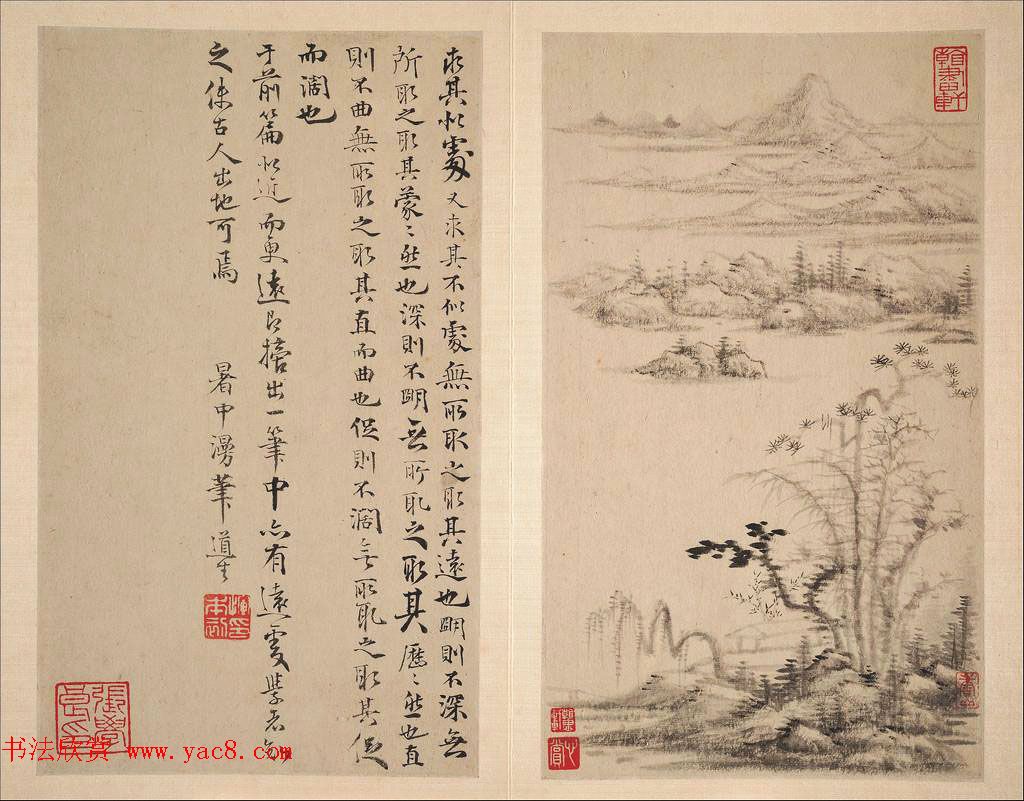 求其似處又求其不似處無所取之取其遠也明則不深無
所取之取其蒙〻然也深則不明无所取之取其歷〻然也直
則不曲無所取之取其直而曲也促則不濶无所取之取其促
而濶也
于前篇似近而更遠即出一筆中亦有遠處學者
之使古人出地可焉
暑中漫筆 道生
书法欣赏 www.yac8.com